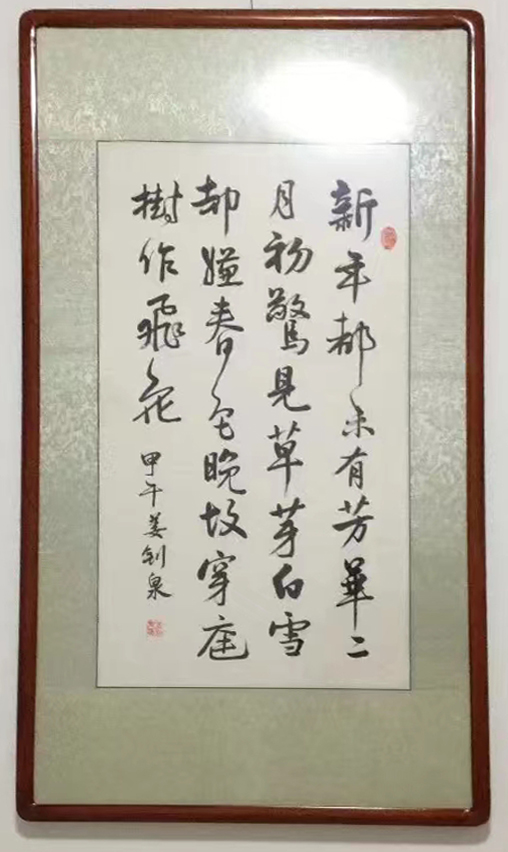 新年都未有芳華二
月初驚見草芽白雪
却嫌春色晚故穿庭
樹作飛花
甲午姜釗泉